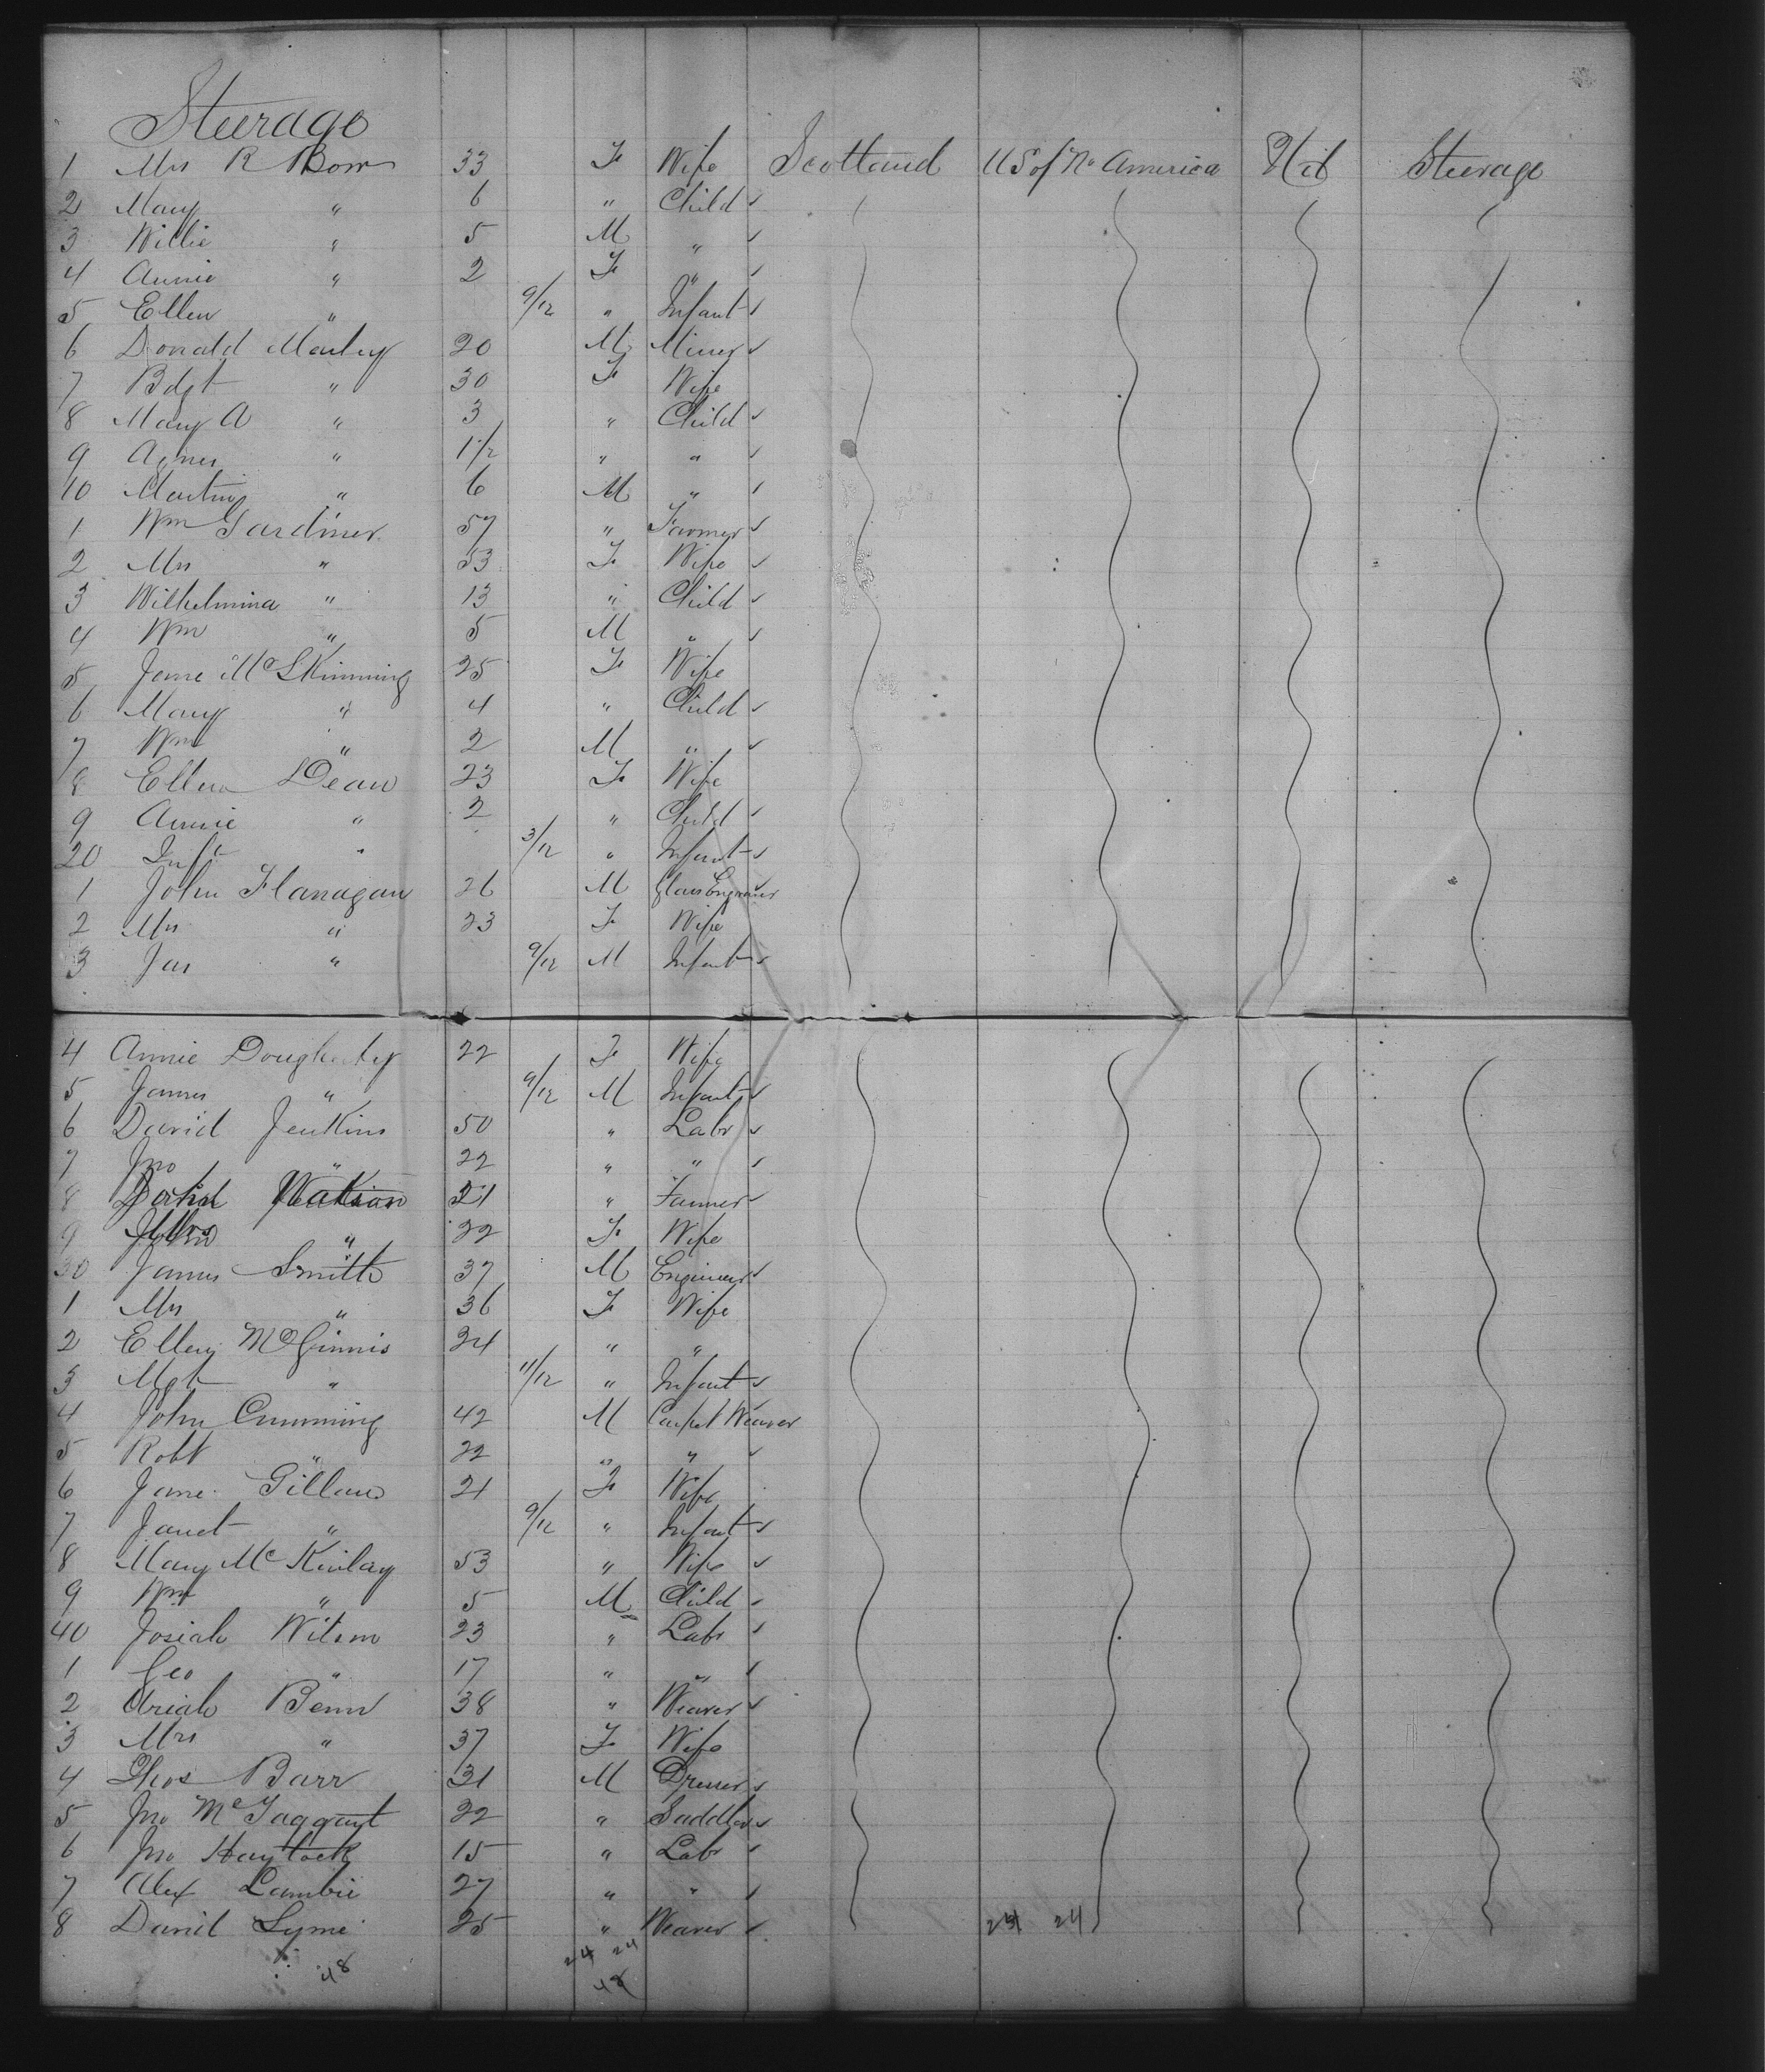 Steerage
1 Mrs R Bow 33 F Wife Scotland US of No America Nil Steerage
2 Mary " 6 " Child ✓
3 Willie " 5 M " ✓
4 Annie " 2 F " ✓
5 Ellen " 9/12 " Infant ✓
6 Donald Manley 20 M Miner ✓
7 Bdgt " 30 F Wife
8 Mary A " 3 " Child ✓
9 Agnes " 1 1/2 " " ✓
10 Martin " 6 M " ✓
1 Wm Gardiner 57 " Farmer ✓
2 Mrs " 53 F Wife ✓
3 Wilhelmina " 13 " Child ✓
4 Wm " 5 M " ✓
5 Jane McSkimming 25 F Wife
6 Mary " 4 " Child ✓
7 Wm " 2 M " ✓
8 Ellen Dean 23 F Wife
9 Annie " 2 " Child ✓
20 Inft " 3/12 " Infant ✓
1 John Flanagan 26 M Glass Engraver
2 Mrs " 23 F Wife
3 Jas " 9/12 M Infant ✓
4 Annie Dougherty 22 F Wife
5 James " 9/12 M Infant ✓
6 David Jenkins 50 " Labr ✓
7 Jno " 22 " " ✓
8 David Watson 21 " Farmer ✓
9 Mrs " 22 F Wife
30 James Smith 37 M Engineer ✓
1 Mrs " 36 F Wife
2 Ellen McGinnis 24 " "
3 Mgt " 11/12 " Infant ✓
4 John Cumming 42 M Carpet Weaver
5 Robt " 22 " " ✓
6 Jane Gillan 21 F Wife
7 Janet " 9/12 " Infant ✓
8 Mary McKinlay 53 " Wife ✓
9 Wm " 5 M Child ✓
40 Josiah Wilson 23 " Labr ✓
1 Geo " 17 " " ✓
2 Uriah Benn 38 " Weaver ✓
3 Mrs " 37 F Wife
4 Thos Barr 31 M Dresser ✓
5 Jno McTaggart 22 " Saddler ✓
6 Jno Haylock 15 " Labr ✓
7 Alex Lambie 27 " " ✓
8 David Syme 25 " Weaver ✓ 24 24
24 24
48 48